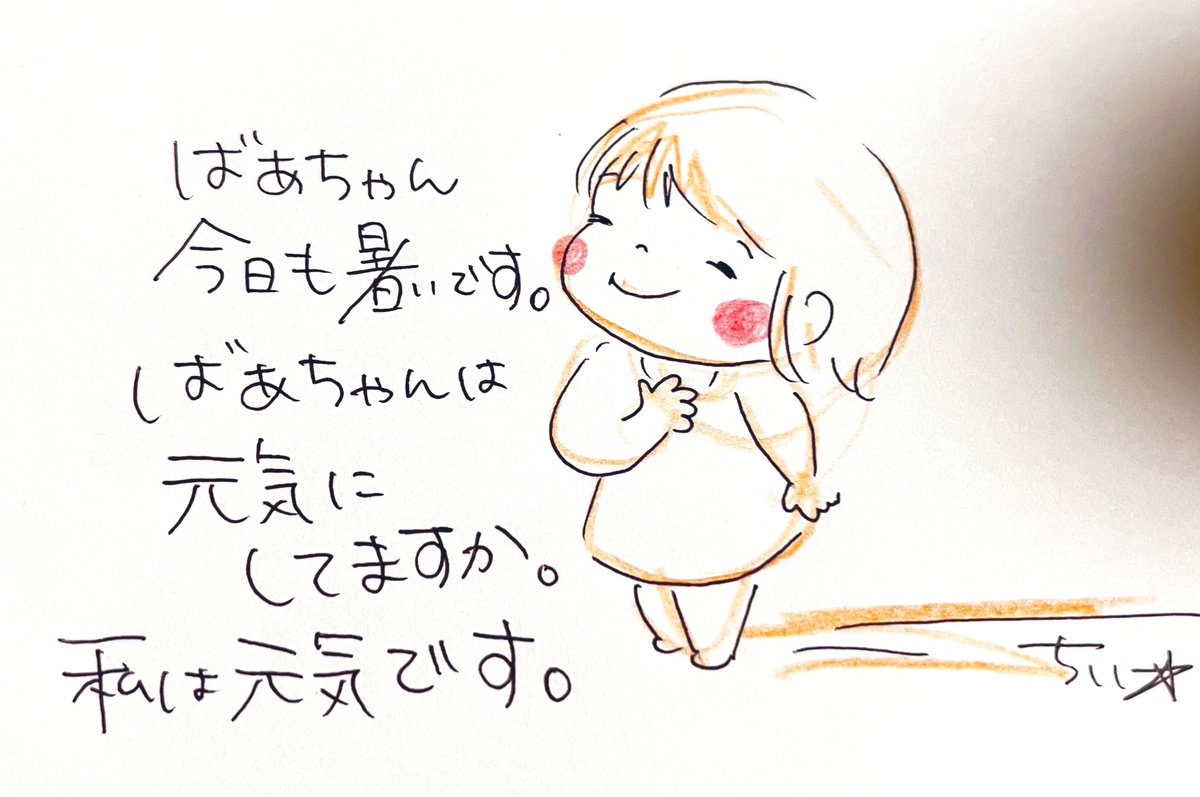 ばあちゃん
今日も暑いです。
ばあちゃんは
元気に
してますか。
私は元気です。
ちい☆